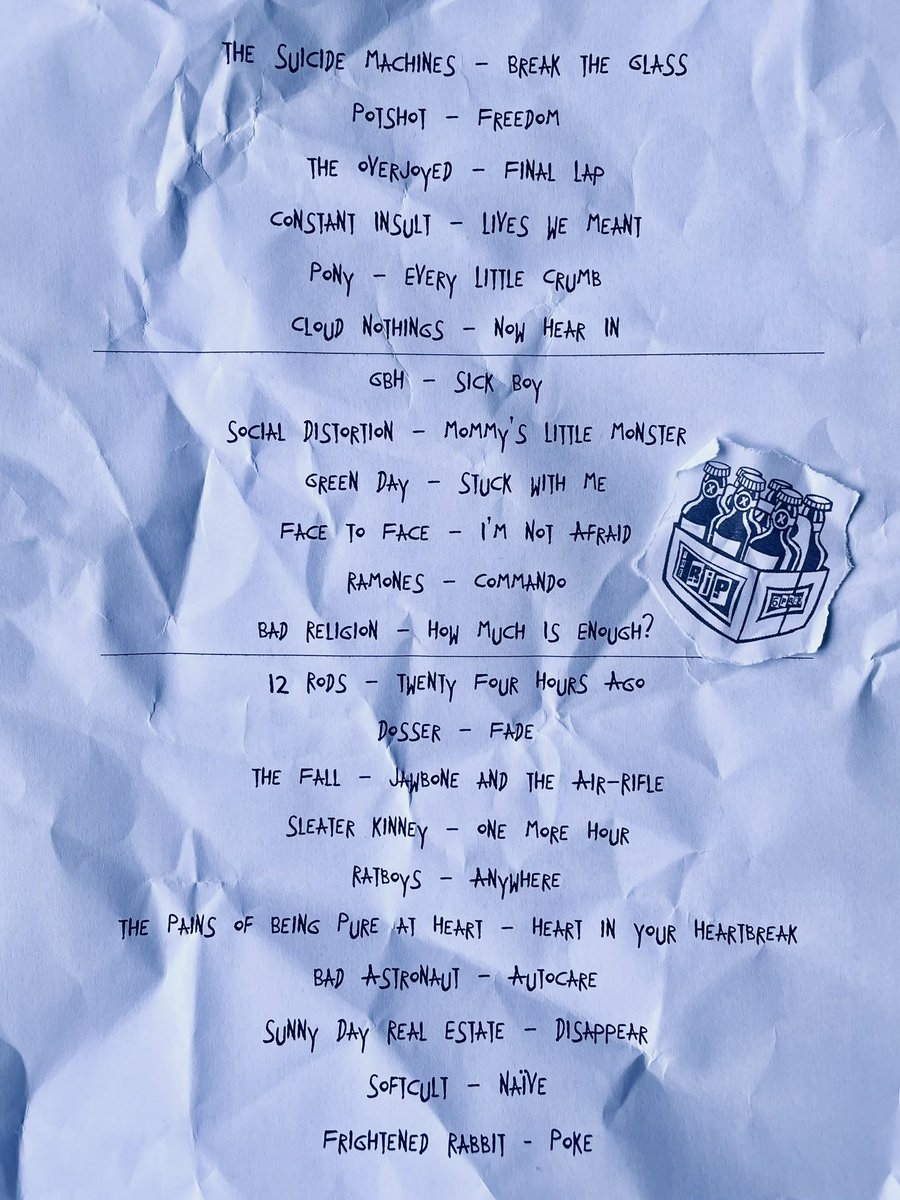 THE SUICIDE MACHINES – BREAK THE GLASS
POTSHOT – FREEDOM
THE OVERJOYED – FINAL LAP
CONSTANT INSULT – LIVES WE MEANT
PONY – EVERY LITTLE CRUMB
CLOUD NOTHINGS – NOW HEAR IN
GBH – SICK BOY
SOCIAL DISTORTION – MOMMY'S LITTLE MONSTER
GREEN DAY – STUCK WITH ME
FACE TO FACE – I'M NOT AFRAID
RAMONES – COMMANDO
BAD RELIGION – HOW MUCH IS ENOUGH?
RIP
12 RODS – TWENTY FOUR HOURS AGO
DOSSER – FADE
THE FALL – JAWBONE AND THE AIR-RIFLE
SLEATER KINNEY – ONE MORE HOUR
RATBOYS – ANYWHERE
THE PAINS OF BEING PURE AT HEART – HEART IN YOUR HEARTBREAK
BAD ASTRONAUT – AUTOCARE
SUNNY DAY REAL ESTATE – DISAPPEAR
SOFTCULT – NAÏVE
FRIGHTENED RABBIT – POKE